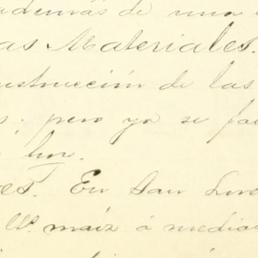 además de una
as Materiales.
strucción de las
s. pero ya se fa
lin.
es. En San Lu
Ms. maíz á media